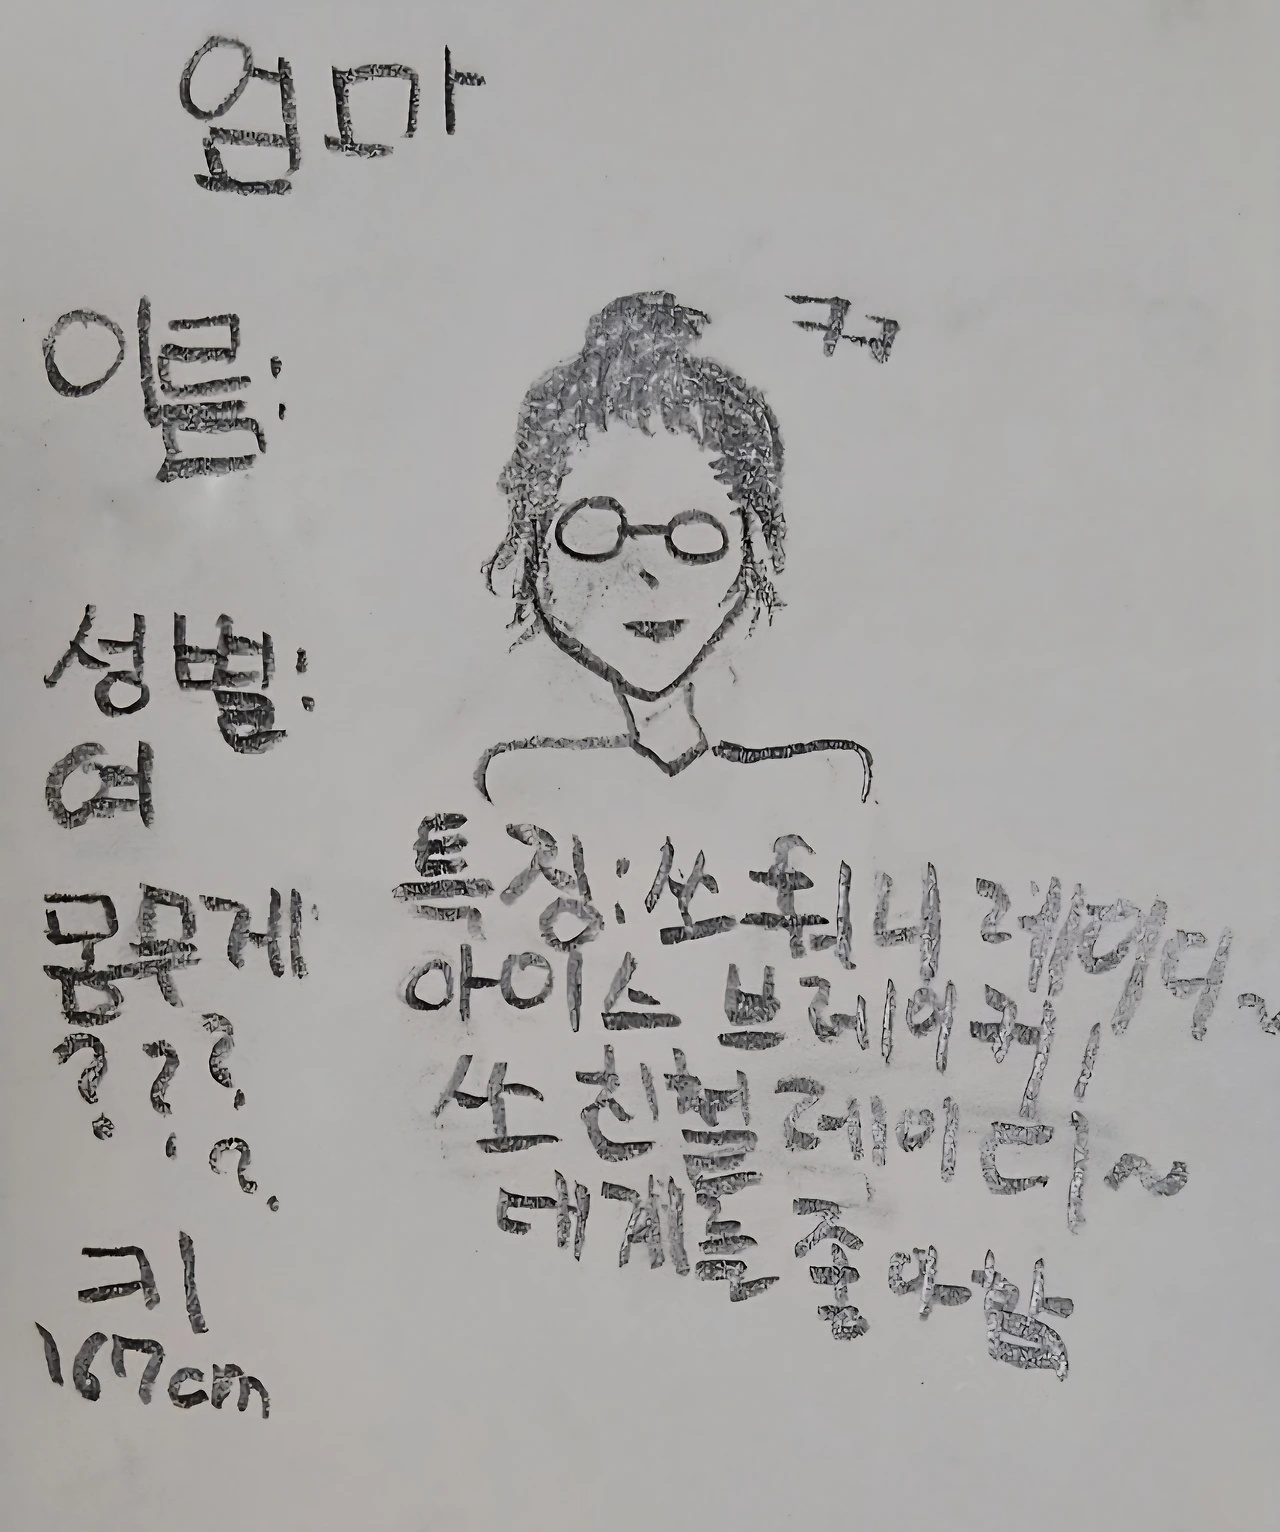 엄마
ㅋㅋ
이름:
성별:
여
몸무게:
????
키
167cm
특징: 쏘 훠니 레이디~
아이스 브레이키
쏘 친벌 레이디~
대게를 좋아함